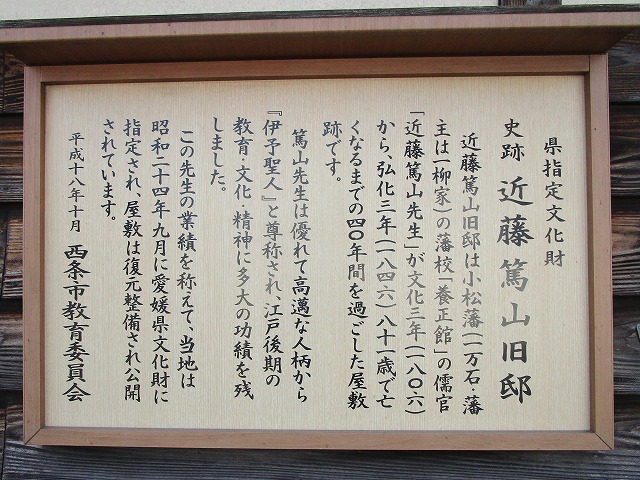 県指定文化財
史跡 近藤篤山旧邸
近藤篤山旧邸は小松藩(一万石・藩
主は一柳家)の藩校「養正館」の儒官
「近藤篤山先生」が文化三年(一八〇六)
から、弘化三年(一八四六)八十一歳で亡
くなるまでの四〇年間を過ごした屋敷
跡です。
篤山先生は優れて高邁な人柄から
『伊予聖人』と尊称され、江戸後期の
教育・文化・精神に多大の功績を残
しました。
この先生の業績を称えて、当地は
昭和二十四年九月に愛媛県文化財に
指定され、屋敷は復元整備され公開
されています。
平成十八年十月 西条市教育委員会